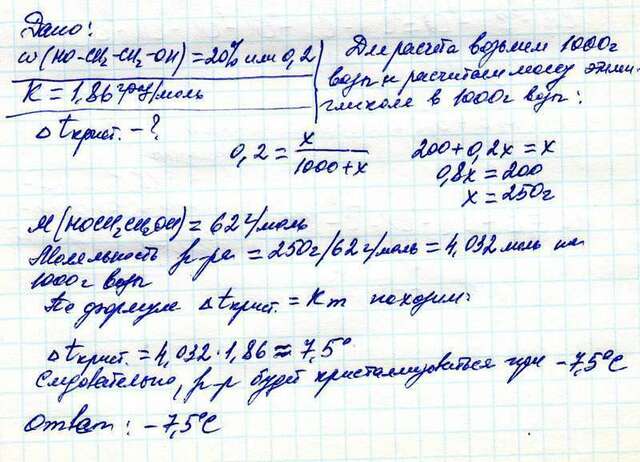 Дано:
ω(HO-CH₂-CH₂-OH)=20% или 0,2
K = 1,86 град/моль
Δtкрист. - ?
Для расчета возьмем 1000г
воды и расчитаем массу этилен-
гликоля в 1000г воды:
0,2 = x/(1000+x)
200+0,2x = x
0,8x = 200
x = 250г
M(HOCH₂CH₂OH) = 62 г/моль
Моляльность р-ра = 250г/62г/моль = 4,032 моль на
1000г воды
По формуле Δtкрист. = Km находим:
Δtкрист. = 4,032·1,86 ≈ 7,5°
Следовательно, р-р будет кристаллизоваться при -7,5°C
Ответ: -7,5°C